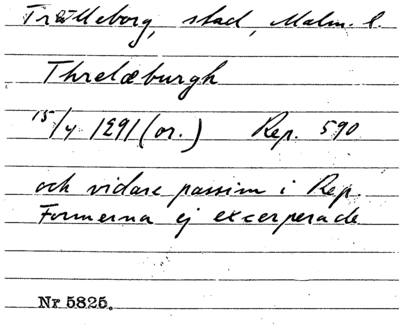 Trälleborg, stad, Malm. l.
Threlæburgh
15/4 1291 (or.) Rep. 590
och vidare passim i Rep.
Formerna ej excerperade
Nr 5825.